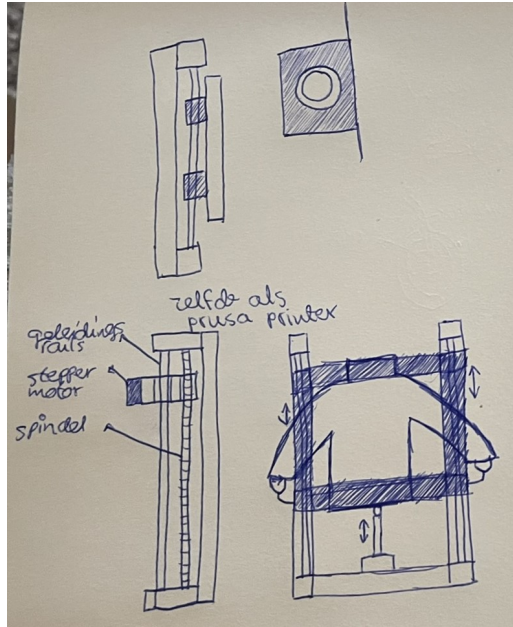 zelfde als
prusa printer
geleidings
rails
stepper
motor
spindel